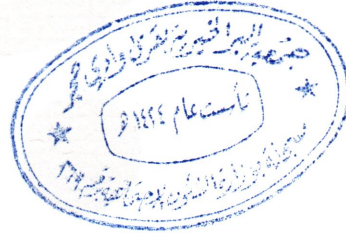 جمعية البر الخيرية بقرى وادي
تأسست عام ١٤٢٤ هـ
مسجلة بوزارة الشئون الاجتماعية برقم